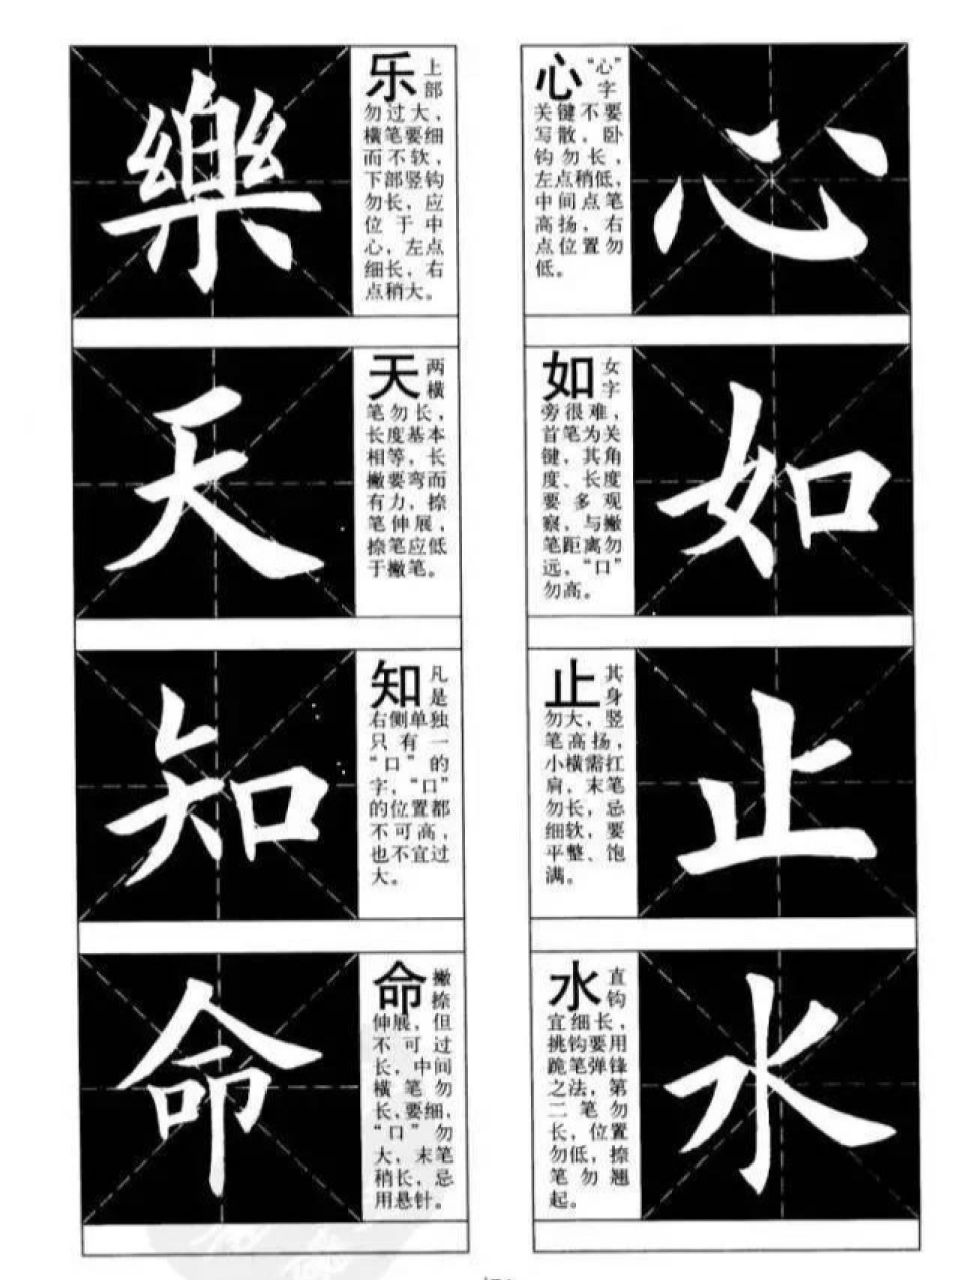 樂
乐 上
部
勿过大，
横笔要细
而不软，
下部竖钩
勿长，应
位于中
心，左点
细长，右
点稍大。
天
天 两
横
笔勿长，
长度基本
相等，长
撇要弯而
有力，捺
笔伸展，
捺笔应低
于撇笔。
知
知 凡
是
右侧单独
只有一
“口”的
字，“口”
的位置都
不可高，
也不宜过
大。
命
命 撇
捺
伸展，但
不可过
长，中间
横笔勿
长、要细，
“口”勿
大，末笔
稍长，忌
用悬针。
心 “心”
字
关键不要
写散，卧
钩勿长，
左点稍低，
中间点笔
高扬，右
点位置勿
低。
心
如 女
字
旁很难，
首笔为关
键，其角
度、长度
要多观
察，与撇
笔距离勿
远，“口”
勿高。
如
止 其
身
勿大，竖
笔高扬，
小横需扛
肩，末笔
勿长，忌
细软，要
平整、饱
满。
止
水 直
钩
宜细长，
挑钩要用
跪笔弹锋
之法，第
二笔勿
长，位置
勿低，捺
笔勿翘
起。
水